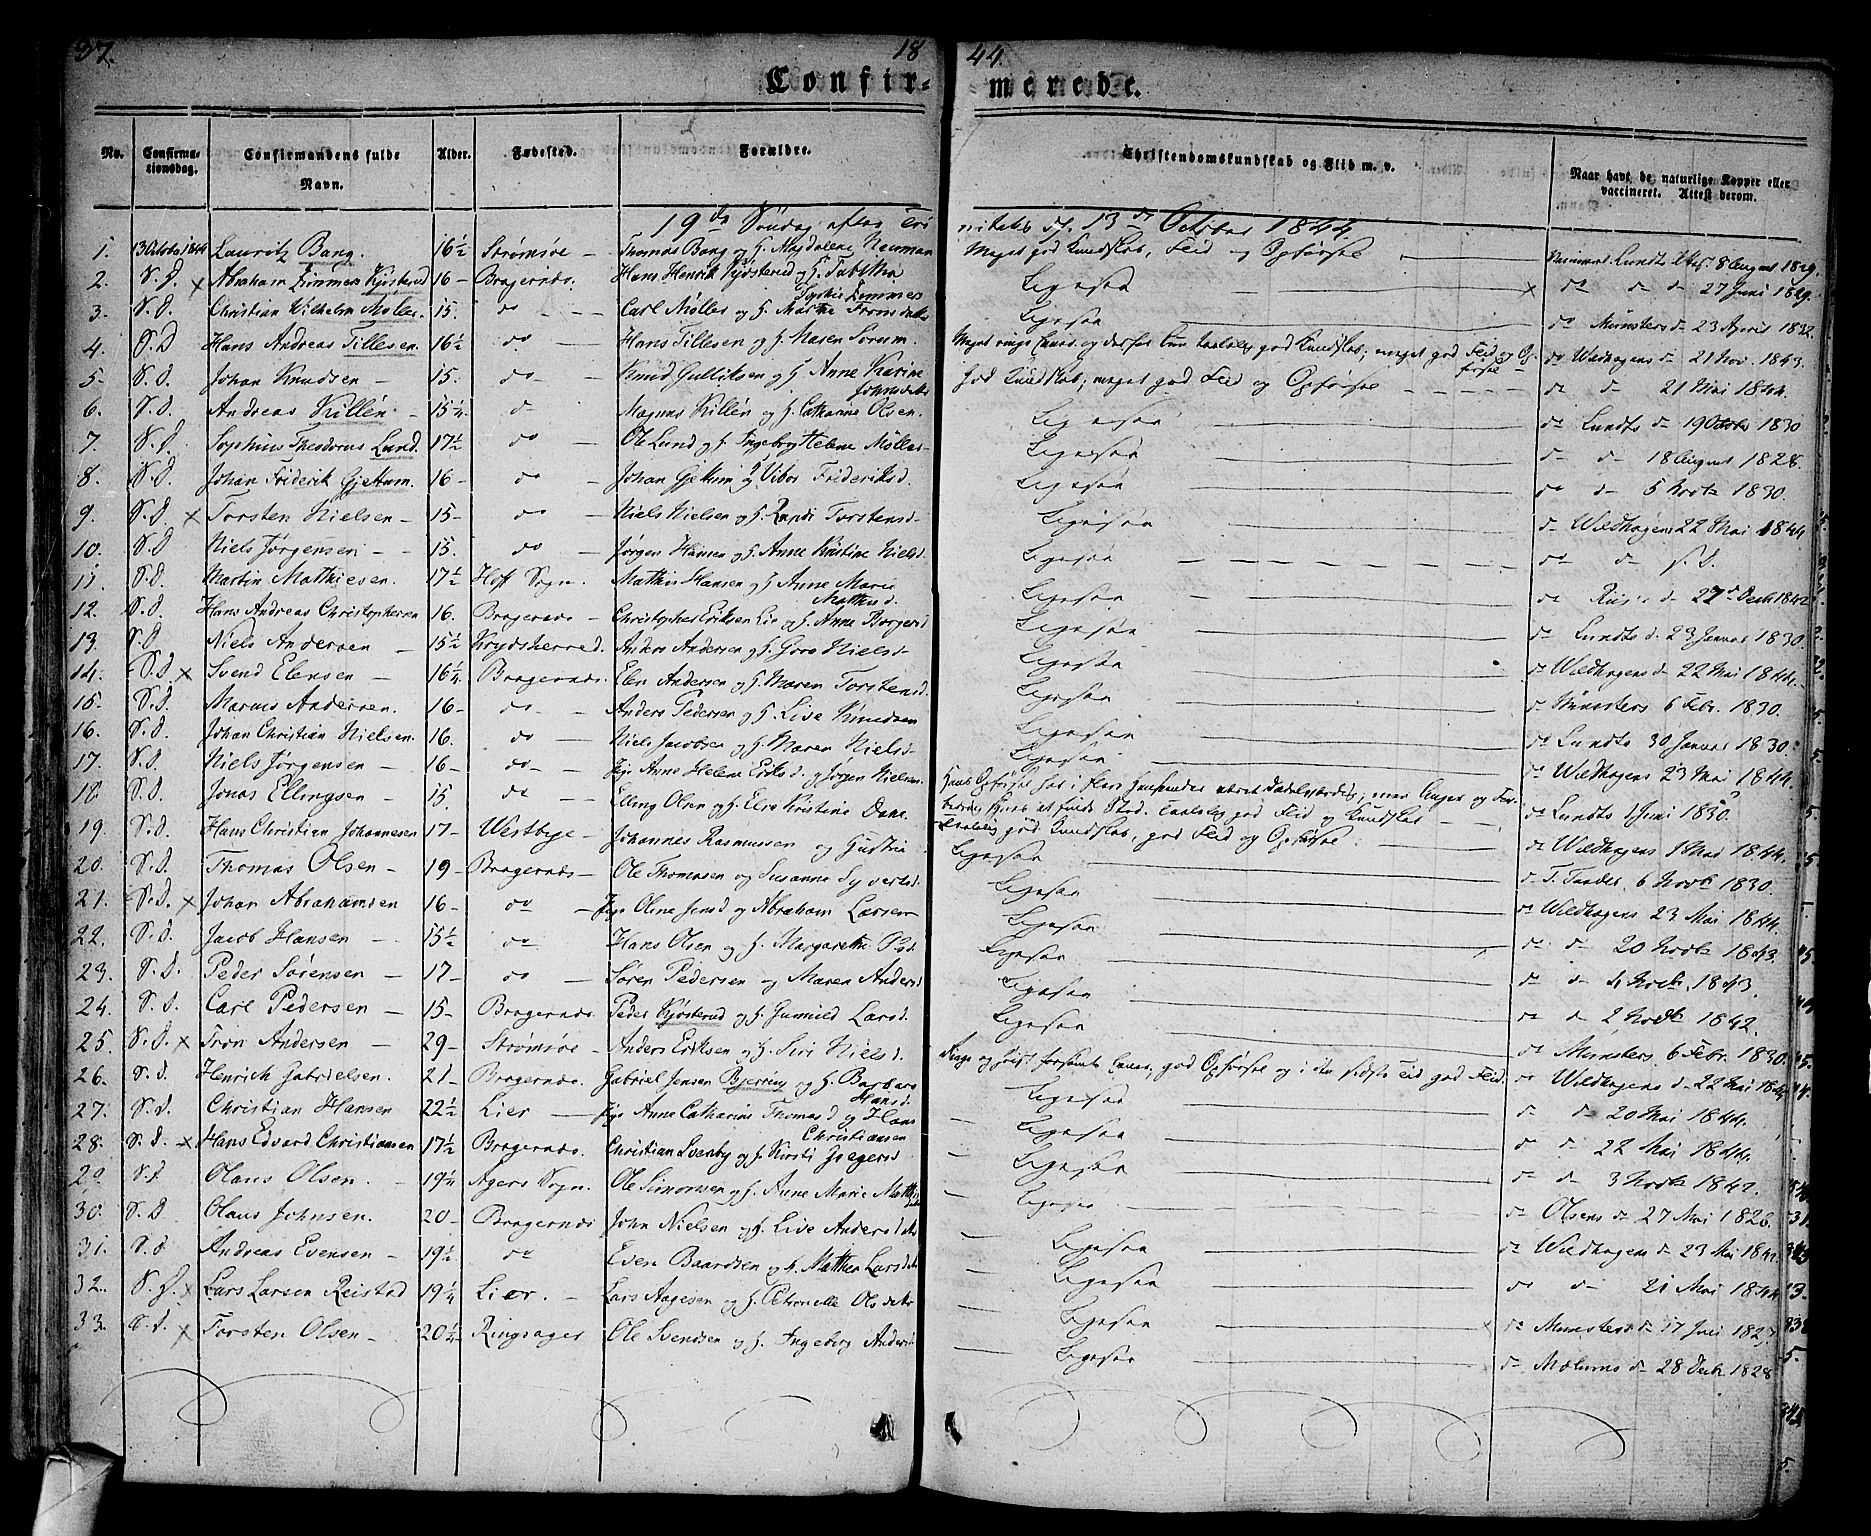 37. 18 44.
Confir- merede.
No. Confirmationsdag. Confirmandens fulde Navn. Alder. Fødested. Forældre. Christendomskundskab og Flid m. v. Naar havt de naturlige Kopper eller vaccineret. Attest derom.
19de Søndag efter Trinitatis d. 13de October 1844
1. 13 October 1844 Lauritz Bang. 16½ Strømsøe - Thomas Bang og H. Magdalene Neuman Meget god Kundskab, Flid og Opførsel Lundts Attest 8 August 1829.
2. S. D. x Abraham Zimmers Kjøsterud 16 - Bragernæs. Hans Henrik Kjøsterud og H. Tabitha Sophie Zimmers Ligesaa x do do d 27 Juni 1829.
3. S. D. Christian Wilhelm Møller. 15. do - Carl Møller og H. Marthe Tronsdatter Ligesaa do Münsters d 23 April 1832.
4. S. D Hans Andreas Tillesen. 16½ do - Hans Tillesen og H. Maren Sørum. do Wildhagens d 21 Nov. 1843.
5. S. D. Johan Knudsen - 15. do - Knud Gulliksen og H Anne Karine Johnsdatter God Kundskab; meget god Flid og Opførsel do d 21 Mai 1844.
6. S. D. Andreas Killén - 15¼ do - Magnus Killén og H. Catharine Olsen. Ligesaa do Lundts d 19 Octob 1830
7. S. D. Sophus Theodorus Lund. 17½ do - Ole Lund og H. Ingeborg Helene Møller - Ligesaa do d 18 August 1828.
8. S. D. Johan Friderik Gjetham. 16 - do - Johan Gjetham og Vibor Frideriksd. Ligesaa do d 5 Novbr 1830.
9. S. D. x Torsten Nielsen - 15 - do - Niels Nielsen og H. Randi Torstensd - Ligesaa do Wildhagens 22 Mai 1844.
10. S. D Niels Jørgensen - 15. do - Jørgen Hansen og H. Anne Kirstine Nielsd. Ligesaa do d S. D.
11. S. D. Martin Matthiesen. 17½ Hoff Sogn. Mathis Hansen og H Anne Marie Matthisd. Ligesaa do d 27de Decb 1842
12. S. D. Hans Andreas Christophersen 16. Bragernæs - Christopher Eriksen Lie og H. Anne Borgersd Ligesaa do Lundts d. 23 Januar 1830.
13. S. D Niels Andersen - 15½ Krydsherred. Anders Andersen og H. Goro Nielsd - Ligesaa do Wildhagens d 22 Mai 1844.
14. S. D. x Svend Elensen - 16¼ Bragernæs. Elen Andersen og H. Maren Torstensd. Ligesaa do Münsters 6 Febr. 1830.
15. S. D. Marius Andersen. 16 - do - Anders Pedersen og H. Live Knudsen Ligesaa do Lundts 30 Januar 1830.
16. S. D. Johan Christian Nielsen. 16. do - Niels Jacobsen og H. Maren Nielsd - Ligesaa do Wildhagens 23 Mai 1844.
17. S. D. Niels Jørgensen - 16 - do - Pige Anne Helene Eriksd. og Jørgen Nielsen. Ligesaa do Lundts 1 Juni 1830.
18. S. D. Jonas Ellingsen 15. do - Elling Olsen og H. Else Kirstine Dane. Hans Opførsel har i flere Henseender været dadelværdig; men Anger og Forbedring synes at finde Sted. Taalelig god Flid og Kundskab do Wildhagens 1 Mai 1844.
19. S. D. Hans Christian Johannesen 17 - Westbye - Johannes Rasmussen og Gustia Taalelig god Kundskab, god Flid og Opførsel. do T. Tander 6 Novbr 1830.
20. S. D. Thomas Olsen - 19 - Bragernæs - Ole Thomasen og Susanne Syvertsd. Ligesaa do Wildhagens 23 Mai 1844.
21. S. D. x Johan Abrahamsen 16 - do - Pige Oline Jensd og Abraham Larsen - Ligesaa do d 20 Novbr 1843.
22. S. D. Jacob Hansen 15½ do - Hans Olsen og H. Margarethe Ligesaa do d 4 Novbr. 1843.
23. S. D. Peder Sørensen - 17 - do Søren Pedersen og Maren Andersd Ligesaa do d 2 Novbr 1842.
24. S. D. Carl Pedersen - 15 - Bragernæs. Peder Kjøsterud og H. Gunild Larsd. Ligesaa do Münsters 6 Febr. 1830.
25. S. D. x Tron Andersen - 29 - Strømsøe - Anders Eriksen og H. Siri Nielsd. Ligesaa do Wildhagens d 22 Mai 1844
26. S. D. Henrich Gabrielsen. 21 - Bragernæs. Gabriel Jensen Bjerring og H. Barbara Hansd. god Opførsel og i den sidste Tid god Flid. do d 20 Mai 1844.
27. S. D. Christian Hansen 22½ Lier - Pige Anne Cathrine Thomasd og Hans Christiansen Ligesaa do d 22 Mai 1844.
28. S. D. x Hans Edvard Christiansen 17½ Bragernæs. Christian Svenby og H. Kirsti Joegersd Ligesaa do d 3 Novbr 1842.
29. S. D Olaus Olsen. 19¼ Agers Sogn. Ole Simonsen og H. Anne Marie Matth Ligesaa do Olsens d 27 Mai 1826.
30. S. D Olaus Johnsen. 20 - Bragernæs John Nielsen og H. Live Andersdatter Ligesaa do Wildhagens d 23 Mai 1844.
31. S. D. Andreas Evensen - 19½ do Even Baardsen og H. Mathea Larsdatter Ligesaa do d 21 Mai 1844
32. S. D. x Lars Larsen Reistad 19¼ Lier. - Lars Aagesen og H. Petronelle Olsdatter Ligesaa x do Münsters d 17 Juli 1827
33. S. D. x Torsten Olsen - 20¼ Ringsager Ole Svendsen og H. Ingeborg Andersd Ligesaa do d 28 Decbr 1828